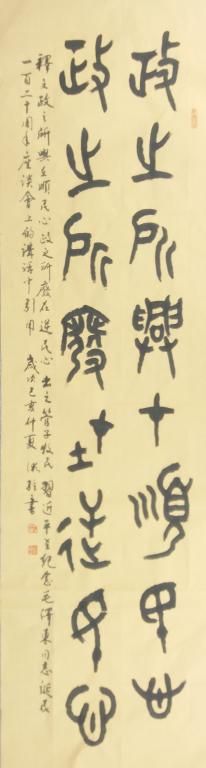 政之所興在順民心
政之所廢在逆民心
釋文政之所興在順民心政之所廢在逆民心 出之管子牧民 習近平在紀念毛澤東同志誕辰
一百二十周年座談會上的講話中引用 歲次己亥仲夏 書